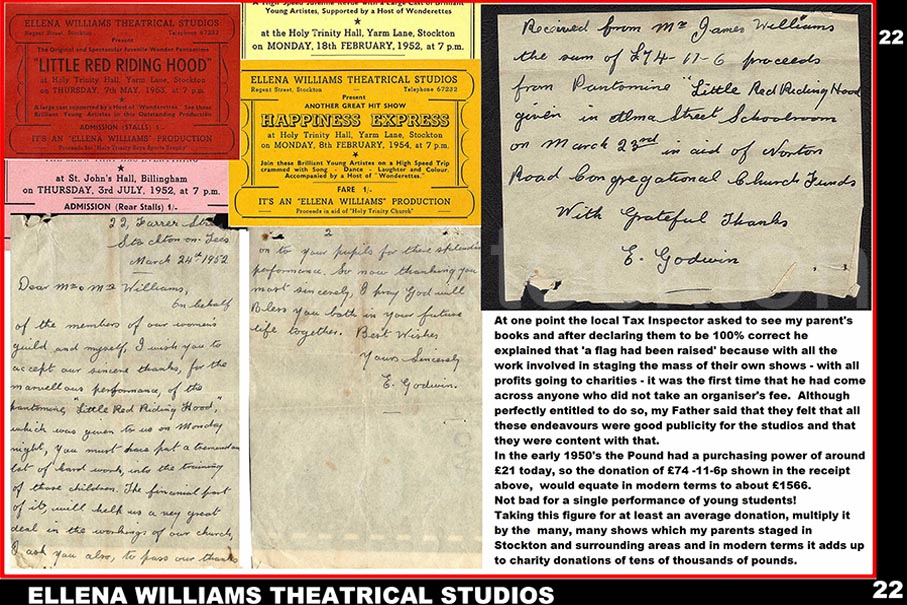 ELLENA WILLIAMS THEATRICAL STUDIOS
Regent Street, Stockton Telephone 67232
Present
The Original and Spectacular Juvenile Wonder Pantomime
"LITTLE RED RIDING HOOD"
at Holy Trinity Hall, Yarm Lane, Stockton
on THURSDAY, 7th MAY, 1953, at 7 p.m.
★
A large cast supported by a Host of "Wonderettes" See these
Brilliant Young Artistes in this Outstanding Production
ADMISSION (STALLS) 1/-
IT'S AN "ELLENA WILLIAMS" PRODUCTION
Proceeds for "Holy Trinity Boys Sports Fund"
A High Speed Juvenile Revue with a Large Cast of Brilliant
Young Artistes, Supported by a Host of Wonderettes
★
at the Holy Trinity Hall, Yarm Lane, Stockton
on MONDAY, 18th FEBRUARY, 1952, at 7 p.m.
ELLENA WILLIAMS THEATRICAL STUDIOS
Regent Street, Stockton Telephone 67232
Present
ANOTHER GREAT HIT SHOW
HAPPINESS EXPRESS
at Holy Trinity Hall, Yarm Lane, Stockton
on MONDAY, 8th FEBRUARY, 1954, at 7 p.m.
★
Join these Brilliant Young Artistes on a High Speed Trip
crammed with Song - Dance - Laughter and Colour.
Accompanied by a Host of "Wonderettes."
FARE 1/-
IT'S AN "ELLENA WILLIAMS" PRODUCTION
Proceeds in aid of "Holy Trinity Church"
★
at St. John's Hall, Billingham
on THURSDAY, 3rd JULY, 1952, at 7 p.m.
ADMISSION (Rear Stalls) 1/-
22, Farrer Street
Stockton-on-Tees
March 24th 1952
Dear Mr & Mrs Williams,
On behalf
of the members of our women's
guild and myself, I wish you to
accept our sincere thanks, for the
marvellous performance, of the
pantomime, "Little Red Riding Hood",
which was given to us on Monday
night, You must have put a tremendous
lot of hard work, into the training
of those children. The financial part
of it, will help us a very great
deal in the workings of our church,
I ask you also, to pass our thanks
2
on to your pupils for there splendid
performance. So now thanking you
most sincerely, I pray God will
Bless you both in your future
life together. Best Wishes
Yours Sincerely
E. Godwin.
Received from Mr James Williams
the sum of £74-11-6 proceeds
from Pantomime "Little Red Riding Hood
given in Alma Street Schoolroom
on March 23rd in aid of Norton
Road Congregational Church Funds
With Grateful Thanks
E. Godwin
At one point the local Tax Inspector asked to see my parent's
books and after declaring them to be 100% correct he
explained that 'a flag had been raised' because with all the
work involved in staging the mass of their own shows - with all
profits going to charities - it was the first time that he had come
across anyone who did not take an organiser's fee. Although
perfectly entitled to do so, my Father said that they felt that all
these endeavours were good publicity for the studios and that
they were content with that.
In the early 1950's the Pound had a purchasing power of around
£21 today, so the donation of £74 -11-6p shown in the receipt
above, would equate in modern terms to about £1566.
Not bad for a single performance of young students!
Taking this figure for at least an average donation, multiply it
by the many, many shows which my parents staged in
Stockton and surrounding areas and in modern terms it adds up
to charity donations of tens of thousands of pounds.
22
ELLENA WILLIAMS THEATRICAL STUDIOS
22